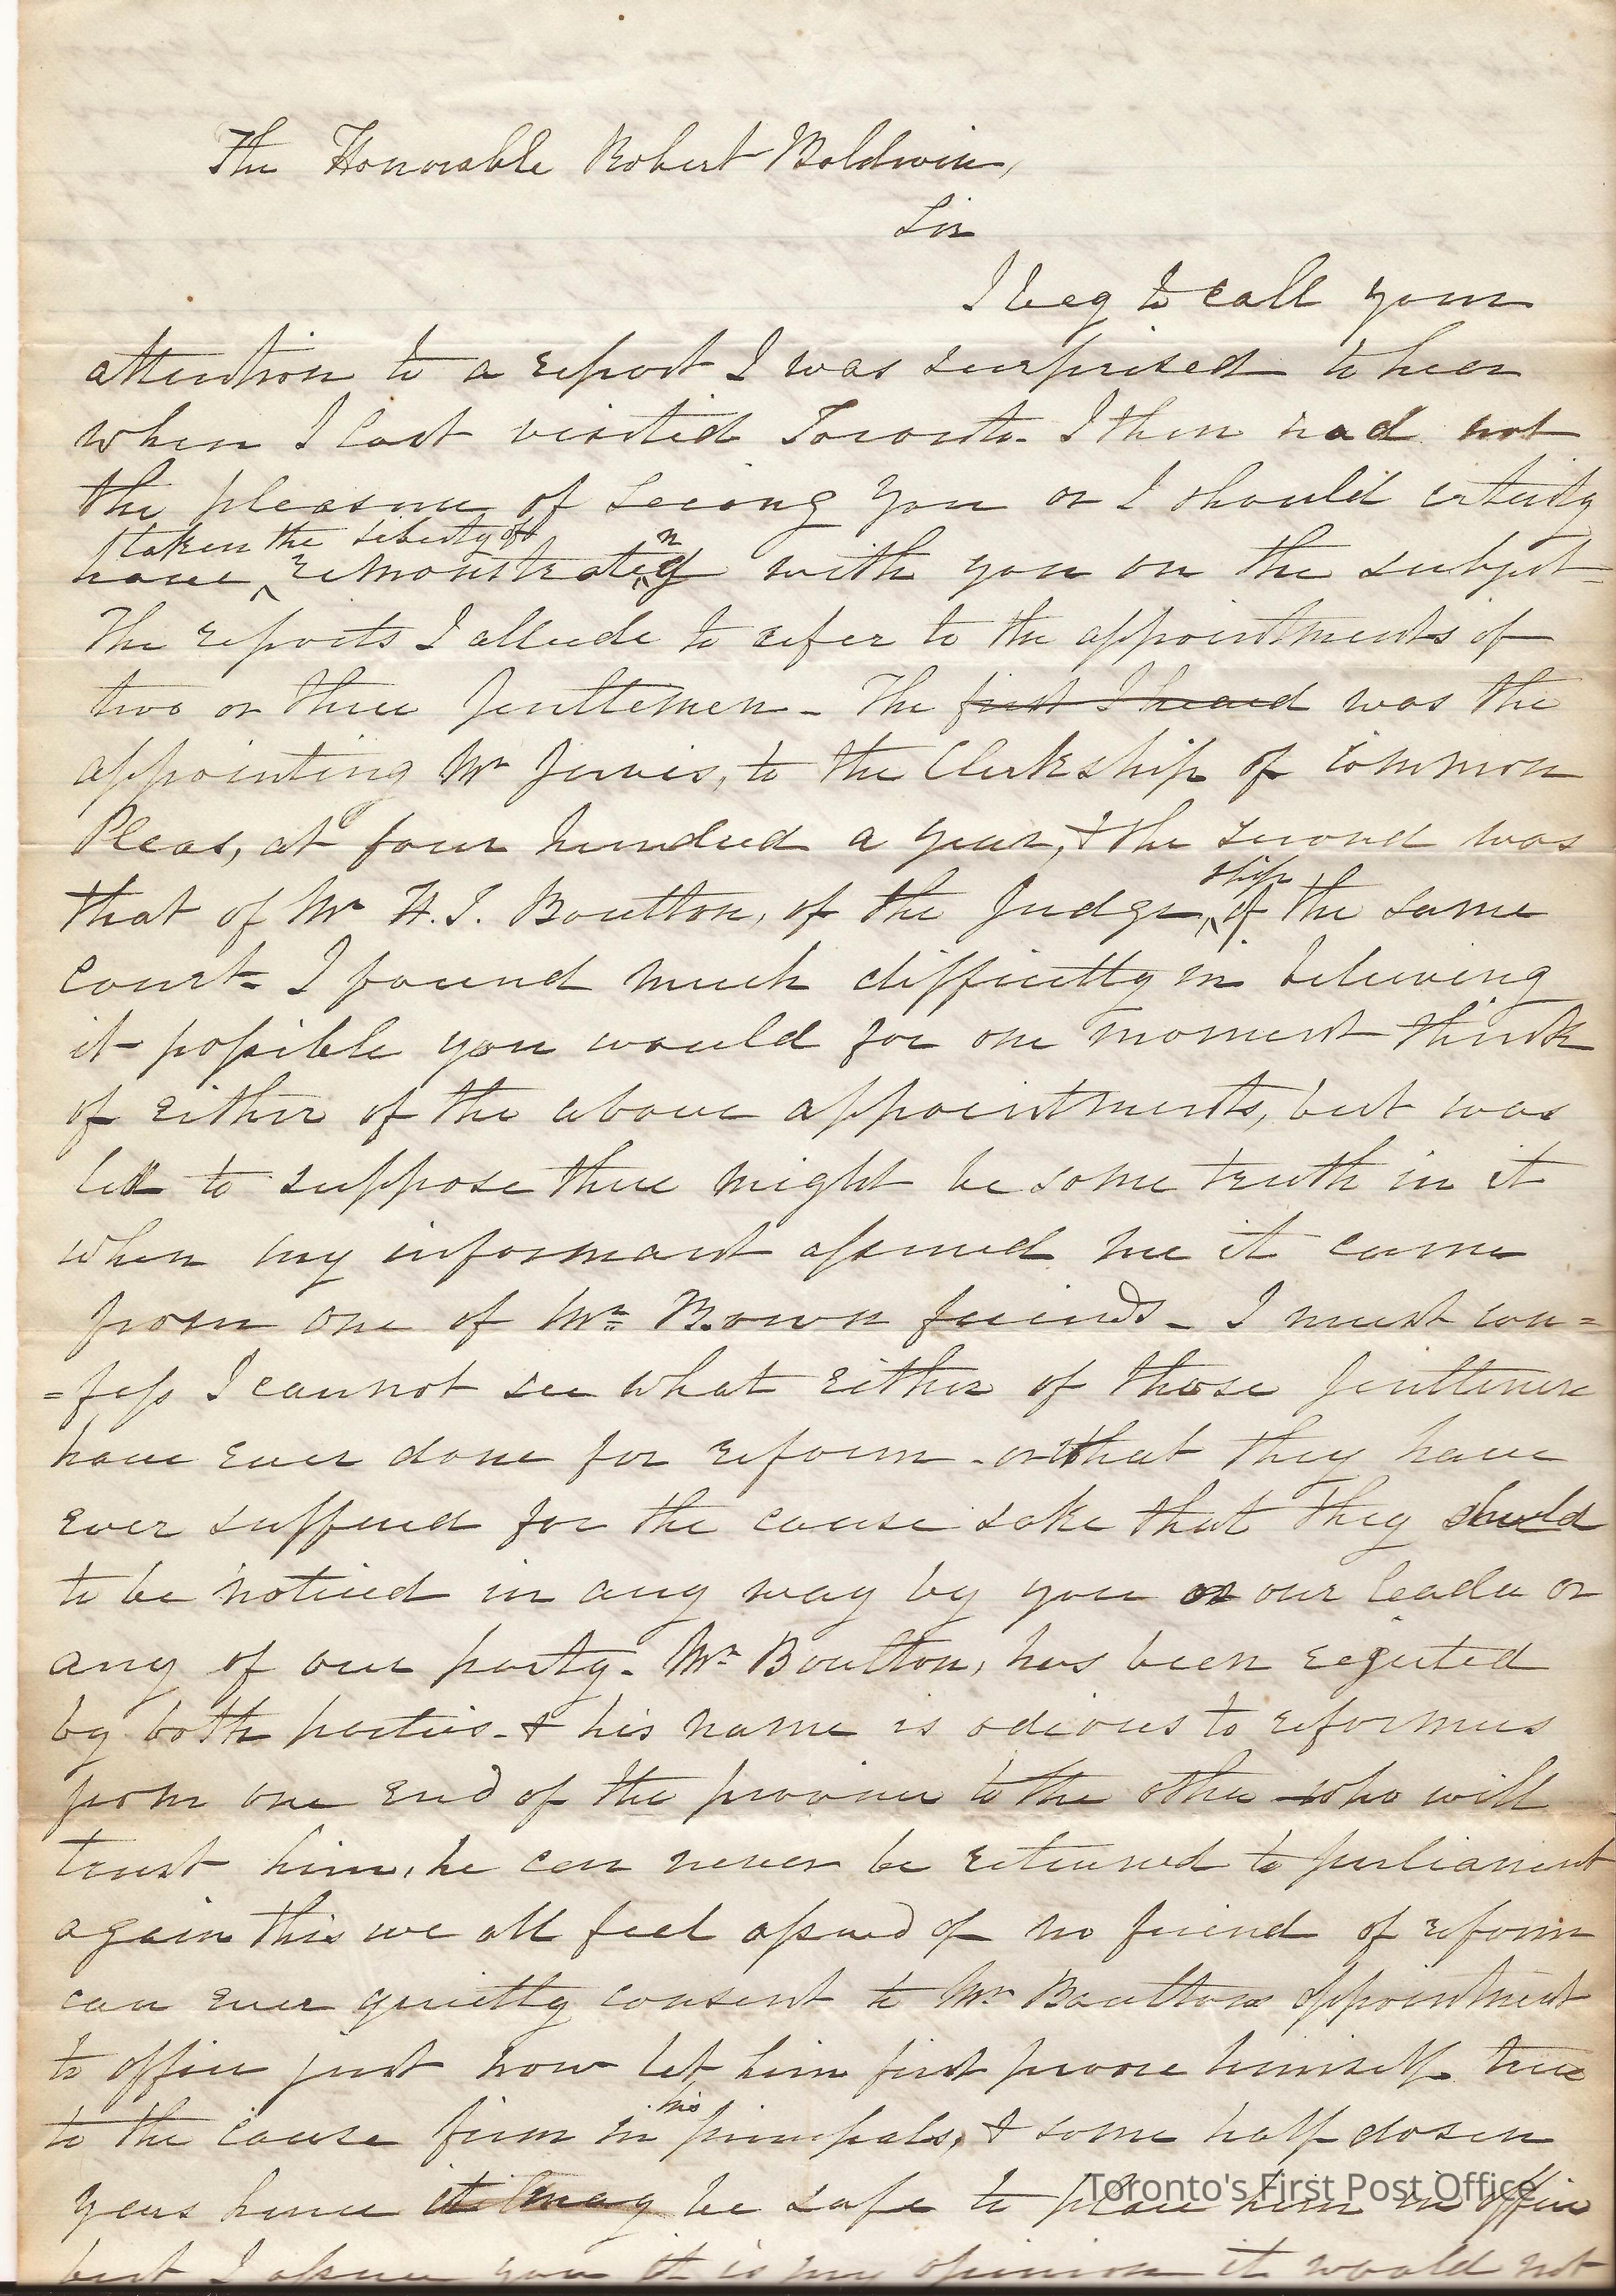 The Honorable Robert Baldwin,
Sir
I beg to call your
attention to a report I was surprised to hear
when I last visited Toronto - I then had not
the pleasure of seeing you or I should certainly
taken the liberty of n
have remonstrateg with you on the subject -
The reports I allude to refer to the appointments of
two or three Jenttemen - The first I heard was the
appointing Mr Jarvis, to the Clerkship of common
Pleas, at four hundred a year, & the second was
ship
that of Mr H. J. Boulton, of the Judge, of the same
court - I found much difficulty in believing
it possible you would for one moment think
of either of the above appointments, but was
led to suppose there might be some truth in it
when my informant assured me it came
from one of Mr B. own friends - I must con=
=fess I cannot see what either of those Jenttemen
have ever done for reform - or that they have
ever suffered for the cause sake that they should
to be noticed in any way by you or our leader or
any of our party - Mr Boulton, has been rejected
by both parties - & his name is odious to reformers
from one end of the province to the other - who will
trust him, he can never be returned to parliament
again this we all feel assured of no friend of reform
can ever quietly consent to Mr Boultons appointment
to office just now let him first proove himself true
his
to the cause firm in principals, & some half dosen
years hence it may be safe to place him in office
but I assure you it is my opinion it would not
Toronto's First Post Office